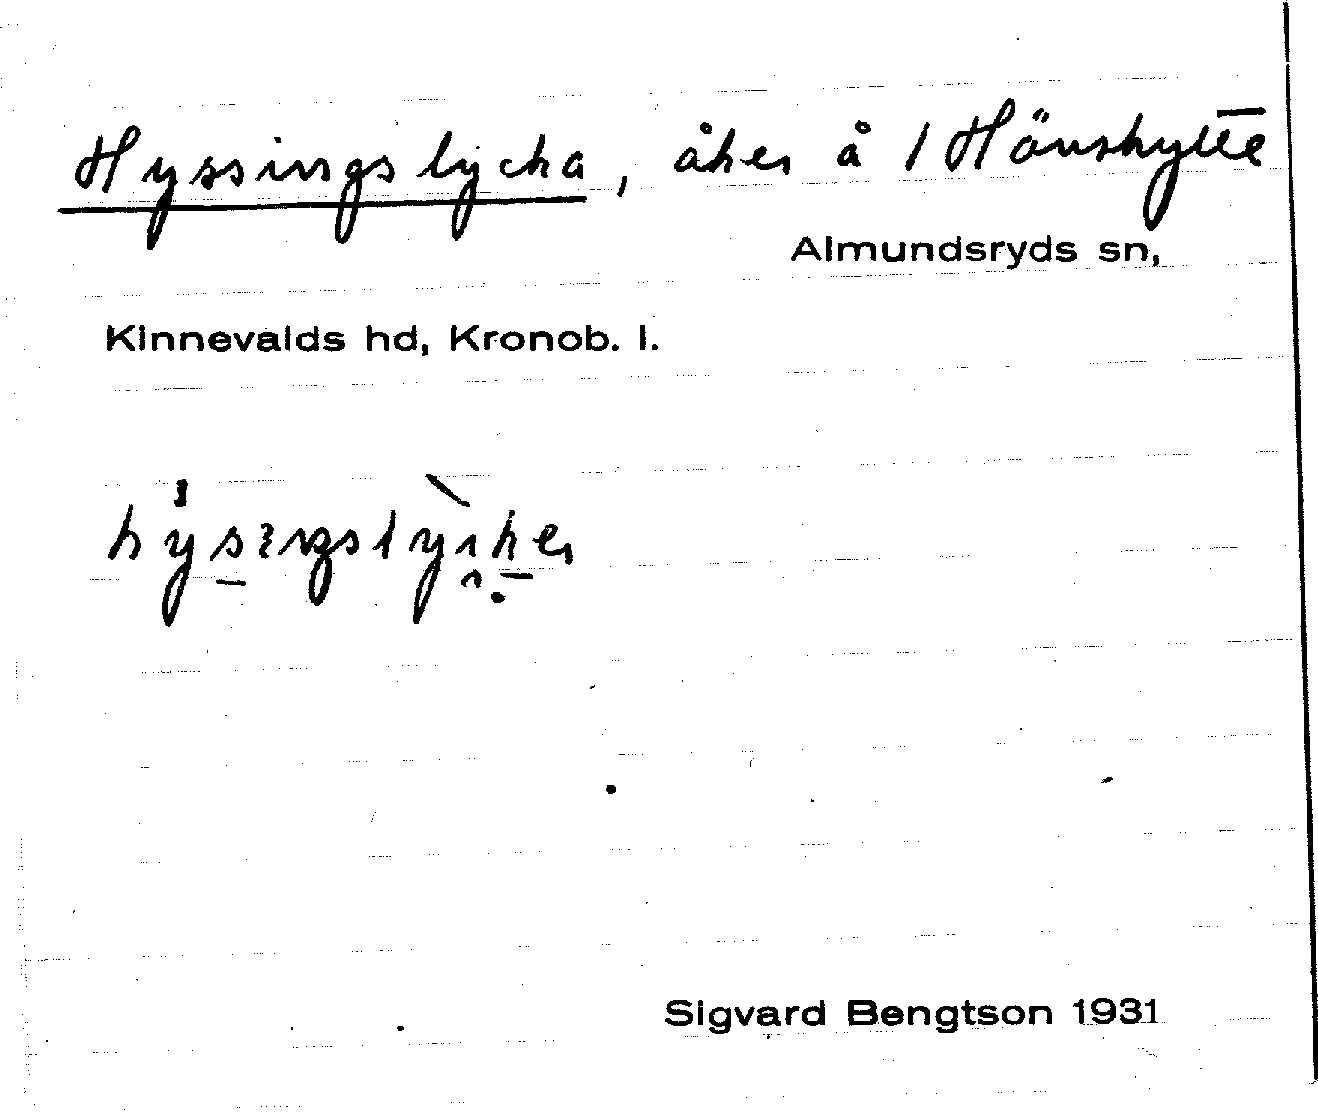 Hyssingslycka, åker å 1 Hönshytte
Almundsryds sn,
Kinnevalds hd, Kronob. l.
Sigvard Bengtson 1931